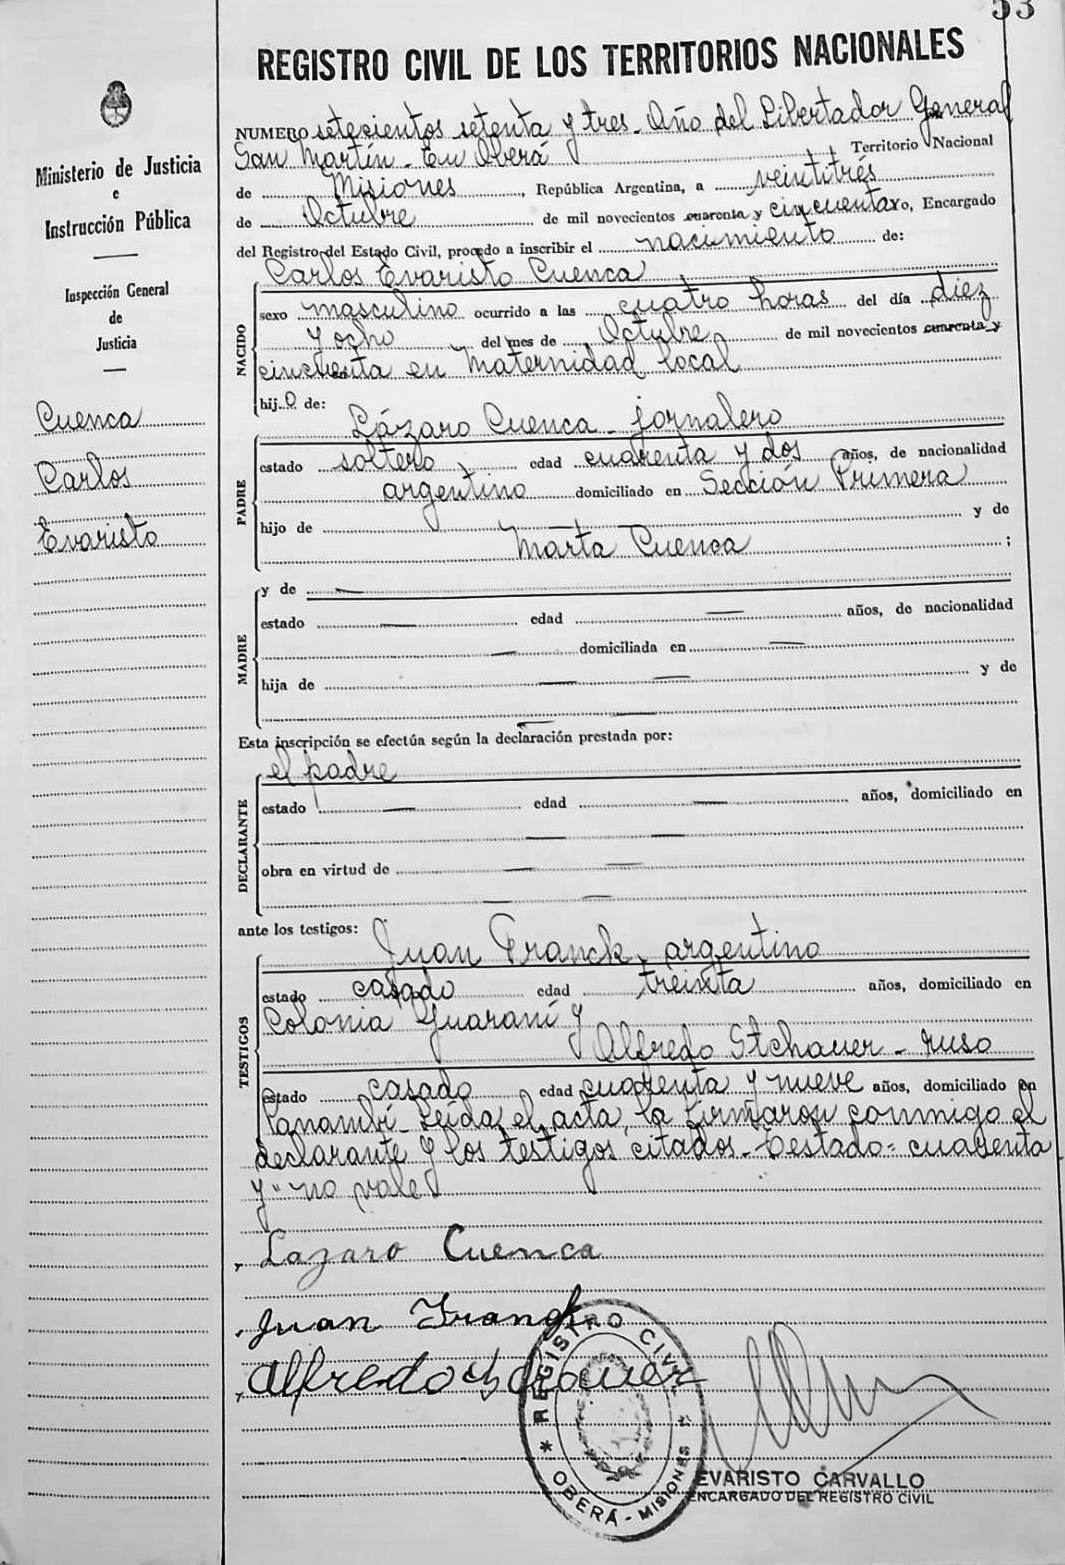 53
REGISTRO CIVIL DE LOS TERRITORIOS NACIONALES
Ministerio de Justicia
e
Instrucción Pública
Inspección General
de
Justicia
Cuenca
Carlos
Evaristo
NUMERO setecientos setenta y tres - Año del Libertador General
San Martín - En Oberá Territorio Nacional
de Misiones, República Argentina, a veintitrés
de Octubre de mil novecientos cuarenta y cincuenta yo, Encargado
del Registro del Estado Civil, procedo a inscribir el nacimiento de:
NACIDO
Carlos Evaristo Cuenca
sexo masculino ocurrido a las cuatro horas del día diez
y ocho del mes de Octubre de mil novecientos cuarenta y
cincuenta en Maternidad local
hijo de:
PADRE
Lázaro Cuenca - jornalero
estado soltero edad cuarenta y dos años, de nacionalidad
argentino domiciliado en Sección Primera
hijo de y de
Marta Cuenca ;
MADRE
y de —
estado — edad — años, de nacionalidad
— domiciliada en —
hija de — — y de
— —
Esta inscripción se efectúa según la declaración prestada por:
DECLARANTE
el padre
estado — edad — años, domiciliado en
— —
obra en virtud de — —
— —
ante los testigos:
TESTIGOS
Juan Franck, argentino
estado casado edad treinta años, domiciliado en
Colonia Guaraní y
Alfredo Stchauer - ruso
estado casado edad cuarenta y nueve años, domiciliado en
Panambí - Leída el acta, la firmaron conmigo el
declarante y los testigos citados - Testado = cuarenta
y" no vale
Lazaro Cuenca
Juan Frank
Alfredo
REGISTRO CIVIL
* OBERÁ - MISIONES *
EVARISTO CARVALLO
ENCARGADO DEL REGISTRO CIVIL